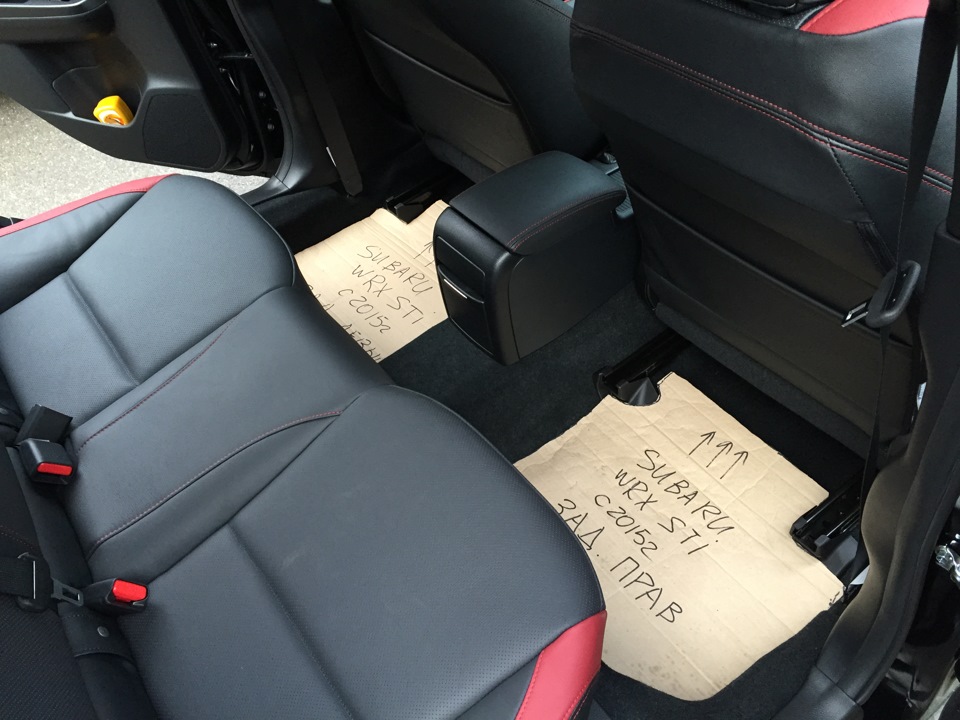 SUBARU
WRX STI
С 2015г
SUBARU
WRX STI
С 2015г
ЗАД. ПРАВ